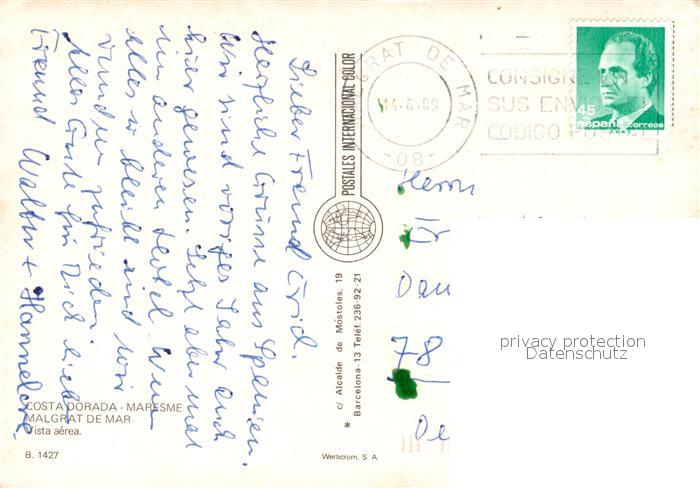 Lieber Freund Erid.
Herzliche Grüsse aus Spanien.
Wir sind voriges Jahr auch
hier gewesen. Jetzt aber mal
im anderen Hotel. Wenn
alles so bleibt sind wir
rundum zufrieden.
Alles Gute für Dich lieber
Freund Walter + Hannelore.
COSTA DORADA - MARESME
MALGRAT DE MAR
Vista aérea.
B. 1427
POSTALES INTERNACIONAL COLOR
c/ Alcalde de Móstoles, 19
* Barcelona-13 Teléf. 236-92-21
Werticrom, S. A.
GRAT DE MAR
-08-
CONSIGNE
SUS ENV
CODIGO
45
españa correos
Herrn
Dau
78
De
privacy protection
Datenschutz